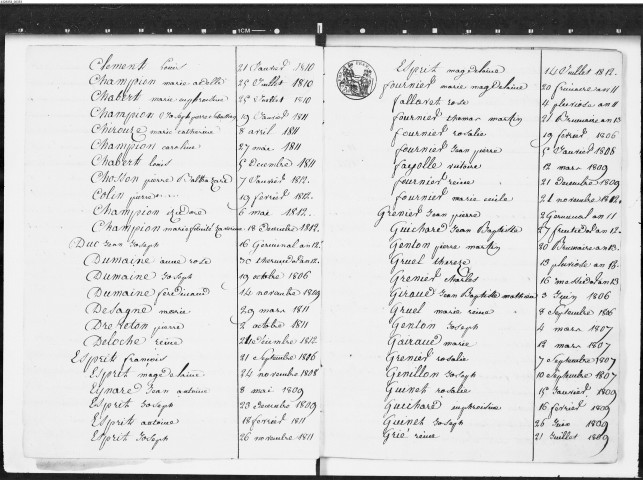 Clement Louis 21 Janvier 1810
Champion marie adelle 25 Juillet 1810
Chabert marie euphrosine 25 Juillet 1810
Champion Joseph pierre 19 Janvier 1811
Cherouze marie catherine 8 avril 1811
Champion caroline 27 mai 1811
Chabert Louis 5 Decembre 1811
Chosson pierre Balthazard 7 Janvier 1812.
Colin pierre 19 fevrier 1812.
Champion isidore 6 mai 1812.
Champion marie felicité 18 Decembre 1812.
Duc Jean Joseph 16 Germinal an 12.
Dumaine anne rose 30 thermidor an 12.
Dumaine Joseph 19 octobre 1806
Dumaine ferdinand 14 novembre 1809
Desagne marie 29 mars 1811
Dreveton pierre 2 octobre 1811
Deloche reine 21 Decembre 1812
Esprit françois 21 Septembre 1806
Esprit magdelaine 24 novembre 1808
Eynard Jean antoine 8 mai 1809
Esprit Joseph 23 Decembre 1809
Esprit antoine 18 fevrier 1811
Esprit Joseph 26 novembre 1811
Esprit magdelaine 14 Juillet 1812.
fournier marie magdelaine 20 frimaire an 11
fallavet rose 4 pluviose an 11
fournier thomas martin 21 Brumaire an 13
fournier rosalie 19 fevrier 1806
fournier Jean pierre 5 Janvier 1808
fayolle 12 mars 1809
fournier reine 21 Decembre 1809
fournier marie 21 novembre 1812.
Grenier Jean pierre 2 Germinal an 11
Guichard Jean Baptiste 27 fructidor an 12
Genton pierre martin 20 Brumaire an 13.
Gruel therese 13 pluviose an 13.
Grenier charles 16 messidor an 13
Giraud Jean Baptiste mathieu 3 Juin 1806
Gruel marie reine 8 Septembre 1806
Genton Joseph 4 mars 1807
Gairaud marie 12 mars 1807
Grenier rosalie 7 Septembre 1807
Genillon Joseph 10 Septembre 1807
Guinet rosalie 15 Janvier 1809
Guichard euphrosine 16 fevrier 1809
Guinet Joseph 26 Juin 1809
Grié reine 21 Juillet 1809